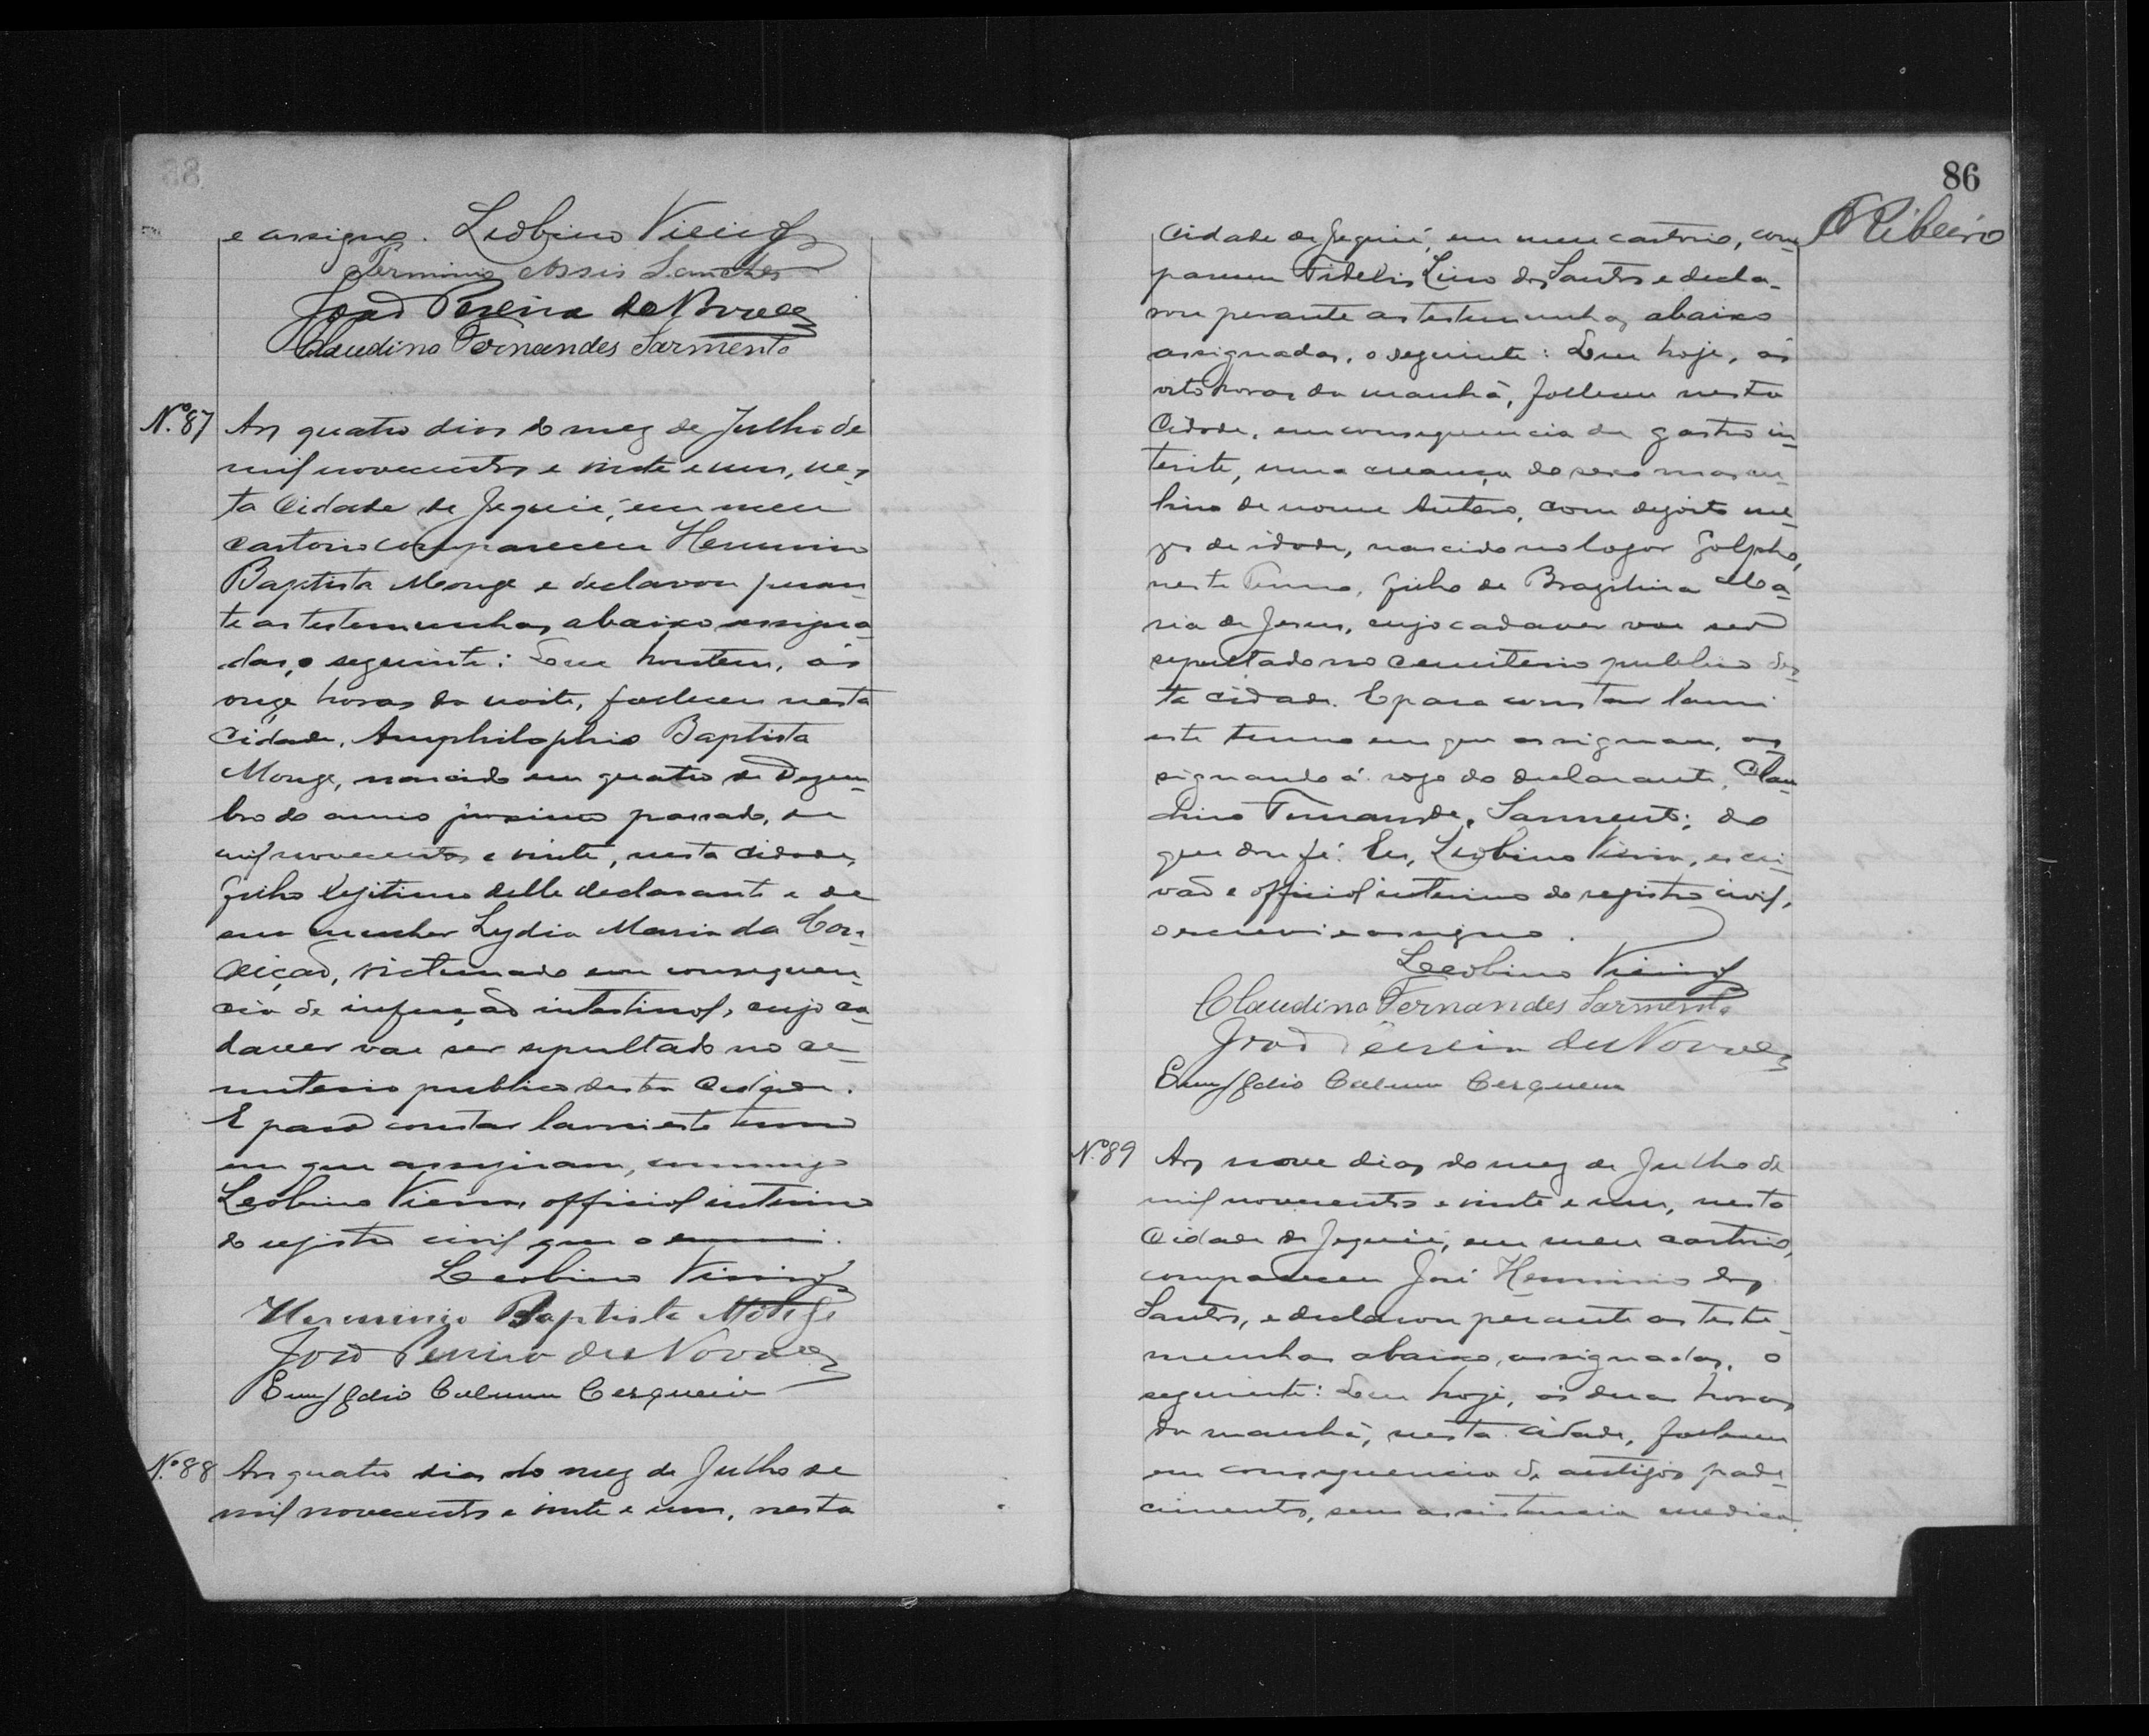 e assigno. Leobino Vieira
Firmino Assis Sanches
João Pereira de Novaes
Claudino Fernandes Sarmento
Nº 87 Aos quatro dias do mez de Julho de
mil novecentos e vinte e um, nes-
ta Cidade de Jequié, em meu
cartorio compareceu Herminio
Baptista Monge e declarou peran-
te as testemunhas abaixo assigna-
das, o seguinte: Que hontem, ás
onze horas da noite, falleceu nesta
Cidade, Amphilophio Baptista
Monge, nascido em quatro de Dezem-
bro do anno proximo passado, de
mil novecentos e vinte, nesta cidade,
filho legitimo delle declarante e de
sua mulher Lydia Maria da Con-
ceição, victimado em consequen-
cia de infecção intestinal, cujo ca-
daver vae ser sepultado no ce-
miterio publico desta Cidade.
E para constar lavrei este termo
em que assignam, commigo
Leobino Vieira, official interino
do registro civil que o escrevi.
Leobino Vieira
Herminio Baptista Monge
João Pereira de Novaes
Emygdio Cerqueira
Nº 88 Aos quatro dias do mez de Julho de
mil novecentos e vinte e um, nesta
86
Ribeiro
Cidade de Jequié, em meu cartorio, com-
pareceu Fidelis Lino dos Santos e decla-
rou perante as testemunhas abaixo
assignadas, o seguinte: Que hoje, ás
oito horas da manhã, falleceu nesta
Cidade, em consequencia de gastro in-
terite, uma creança do sexo mascu-
lino de nome Antero, com dezoito me-
zes de idade, nascido no logar Golpho,
neste Termo, filho de Brazilina Ma-
ria de Jesus, cujo cadaver vae ser
sepultado no cemiterio publico des-
ta cidade. E para constar lavrei
este termo em que assignam, as-
signando á rogo do declarante, Clau-
dino Fernandes Sarmento; do
que dou fé. Eu, Leobino Vieira, escri-
vão e official interino do registro civil,
o escrevi e assigno.
Leobino Vieira
Claudino Fernandes Sarmento
João Pereira de Novaes
Emygdio Cerqueira
Nº 89 Aos nove dias do mez de Julho de
mil novecentos e vinte e um, nesta
Cidade de Jequié, em meu cartorio,
compareceu José Herminio dos
Santos, e declarou perante as teste-
munhas abaixo assignadas, o
seguinte: Que hoje, ás duas horas
da manhã, nesta cidade, falleceu
em consequencia de antigos pade-
cimentos, sem assistencia medica,